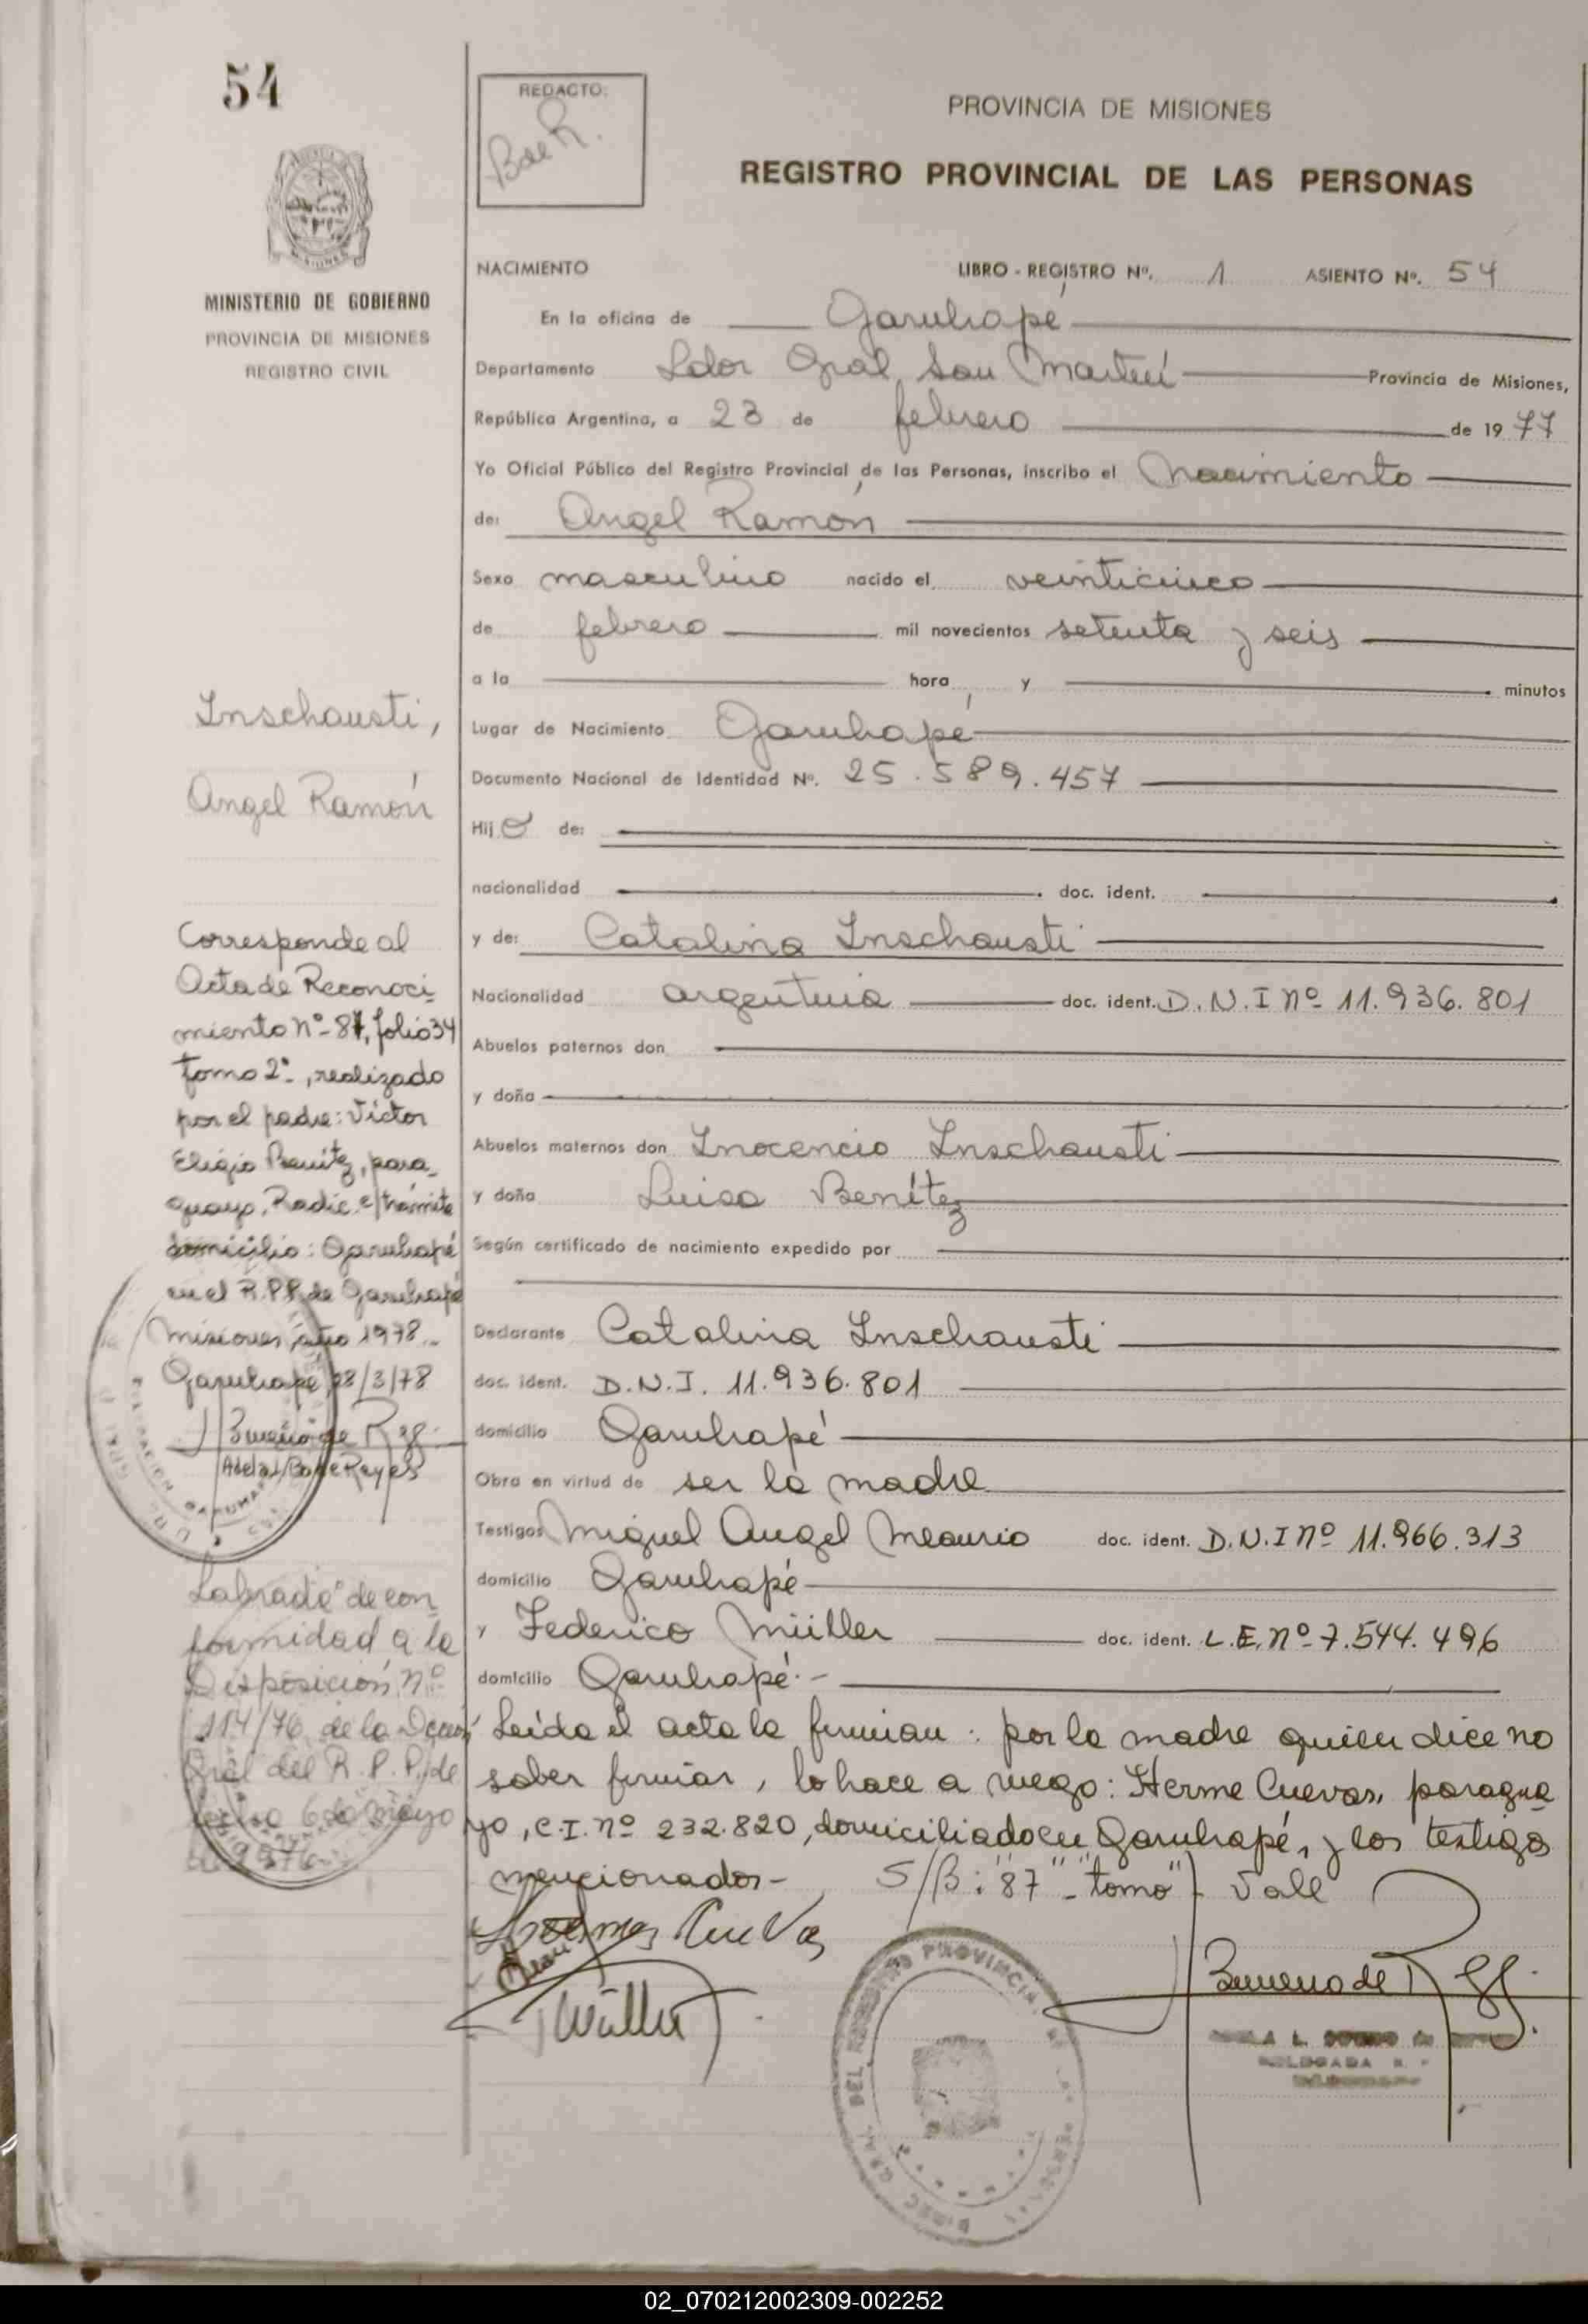 54
MINISTERIO DE GOBIERNO
PROVINCIA DE MISIONES
REGISTRO CIVIL
REDACTO:
B de R.
PROVINCIA DE MISIONES
REGISTRO PROVINCIAL DE LAS PERSONAS
NACIMIENTO LIBRO - REGISTRO Nº. 1 ASIENTO Nº. 54
En la oficina de Garuhapé
Departamento Ldor Gral San Martín Provincia de Misiones,
República Argentina, a 23 de febrero de 1977
Yo Oficial Público del Registro Provincial de las Personas, inscribo el Nacimiento
de: Angel Ramón
Sexo masculino nacido el veinticinco
de febrero mil novecientos setenta y seis
a la hora y minutos
Lugar de Nacimiento Garuhapé
Documento Nacional de Identidad Nº. 25.589.457
Hijo de:
nacionalidad doc. ident.
y de: Catalina Inschausti
Nacionalidad argentina doc. ident. D.N.I nº 11.936.801
Abuelos paternos don
y doña
Abuelos maternos don Inocencio Inschausti
y doña Luisa Benítez
Según certificado de nacimiento expedido por
Declarante Catalina Inschausti
doc. ident. D.N.I. 11.936.801
domicilio Garuhapé
Obra en virtud de ser la madre
Testigos Miguel Angel Meaurio doc. ident. D.N.I nº 11.966.313
domicilio Garuhapé
y Federico Müller doc. ident. L.E. nº 7.544.496
domicilio Garuhapé.-
Leída el acta la firman: por la madre quien dice no
saber firmar, lo hace a ruego: Herme Cuevas, paragua
yo, C.I. nº 232.820, domiciliado en Garuhapé, y los testigos
mencionados- S/B: "87" - "tomo" Vale
Cuevas
Müller
Bueno de R
Inschausti,
Angel Ramón
Corresponde al
Acta de Reconoci-
miento nº 87, folio 34
tomo 2º, realizado
por el padre: Víctor
Eligio Benítez, para-
guayo, Radic. e/trámite
domicilio: Garuhapé
en el R.P.P. de Garuhapé
Misiones, año 1978.-
Garuhapé, 28/3/78
Bueno de R
Adela L. B. de Reyes
Labrada de con-
formidad a la
Disposición nº
114/76 de la Direc.
Gral del R.P.P. de
fecha 6 de Mayo
DIREC. GRAL. DEL REGISTRO PROVINCIAL DE LAS PERSONAS
02_070212002309-002252